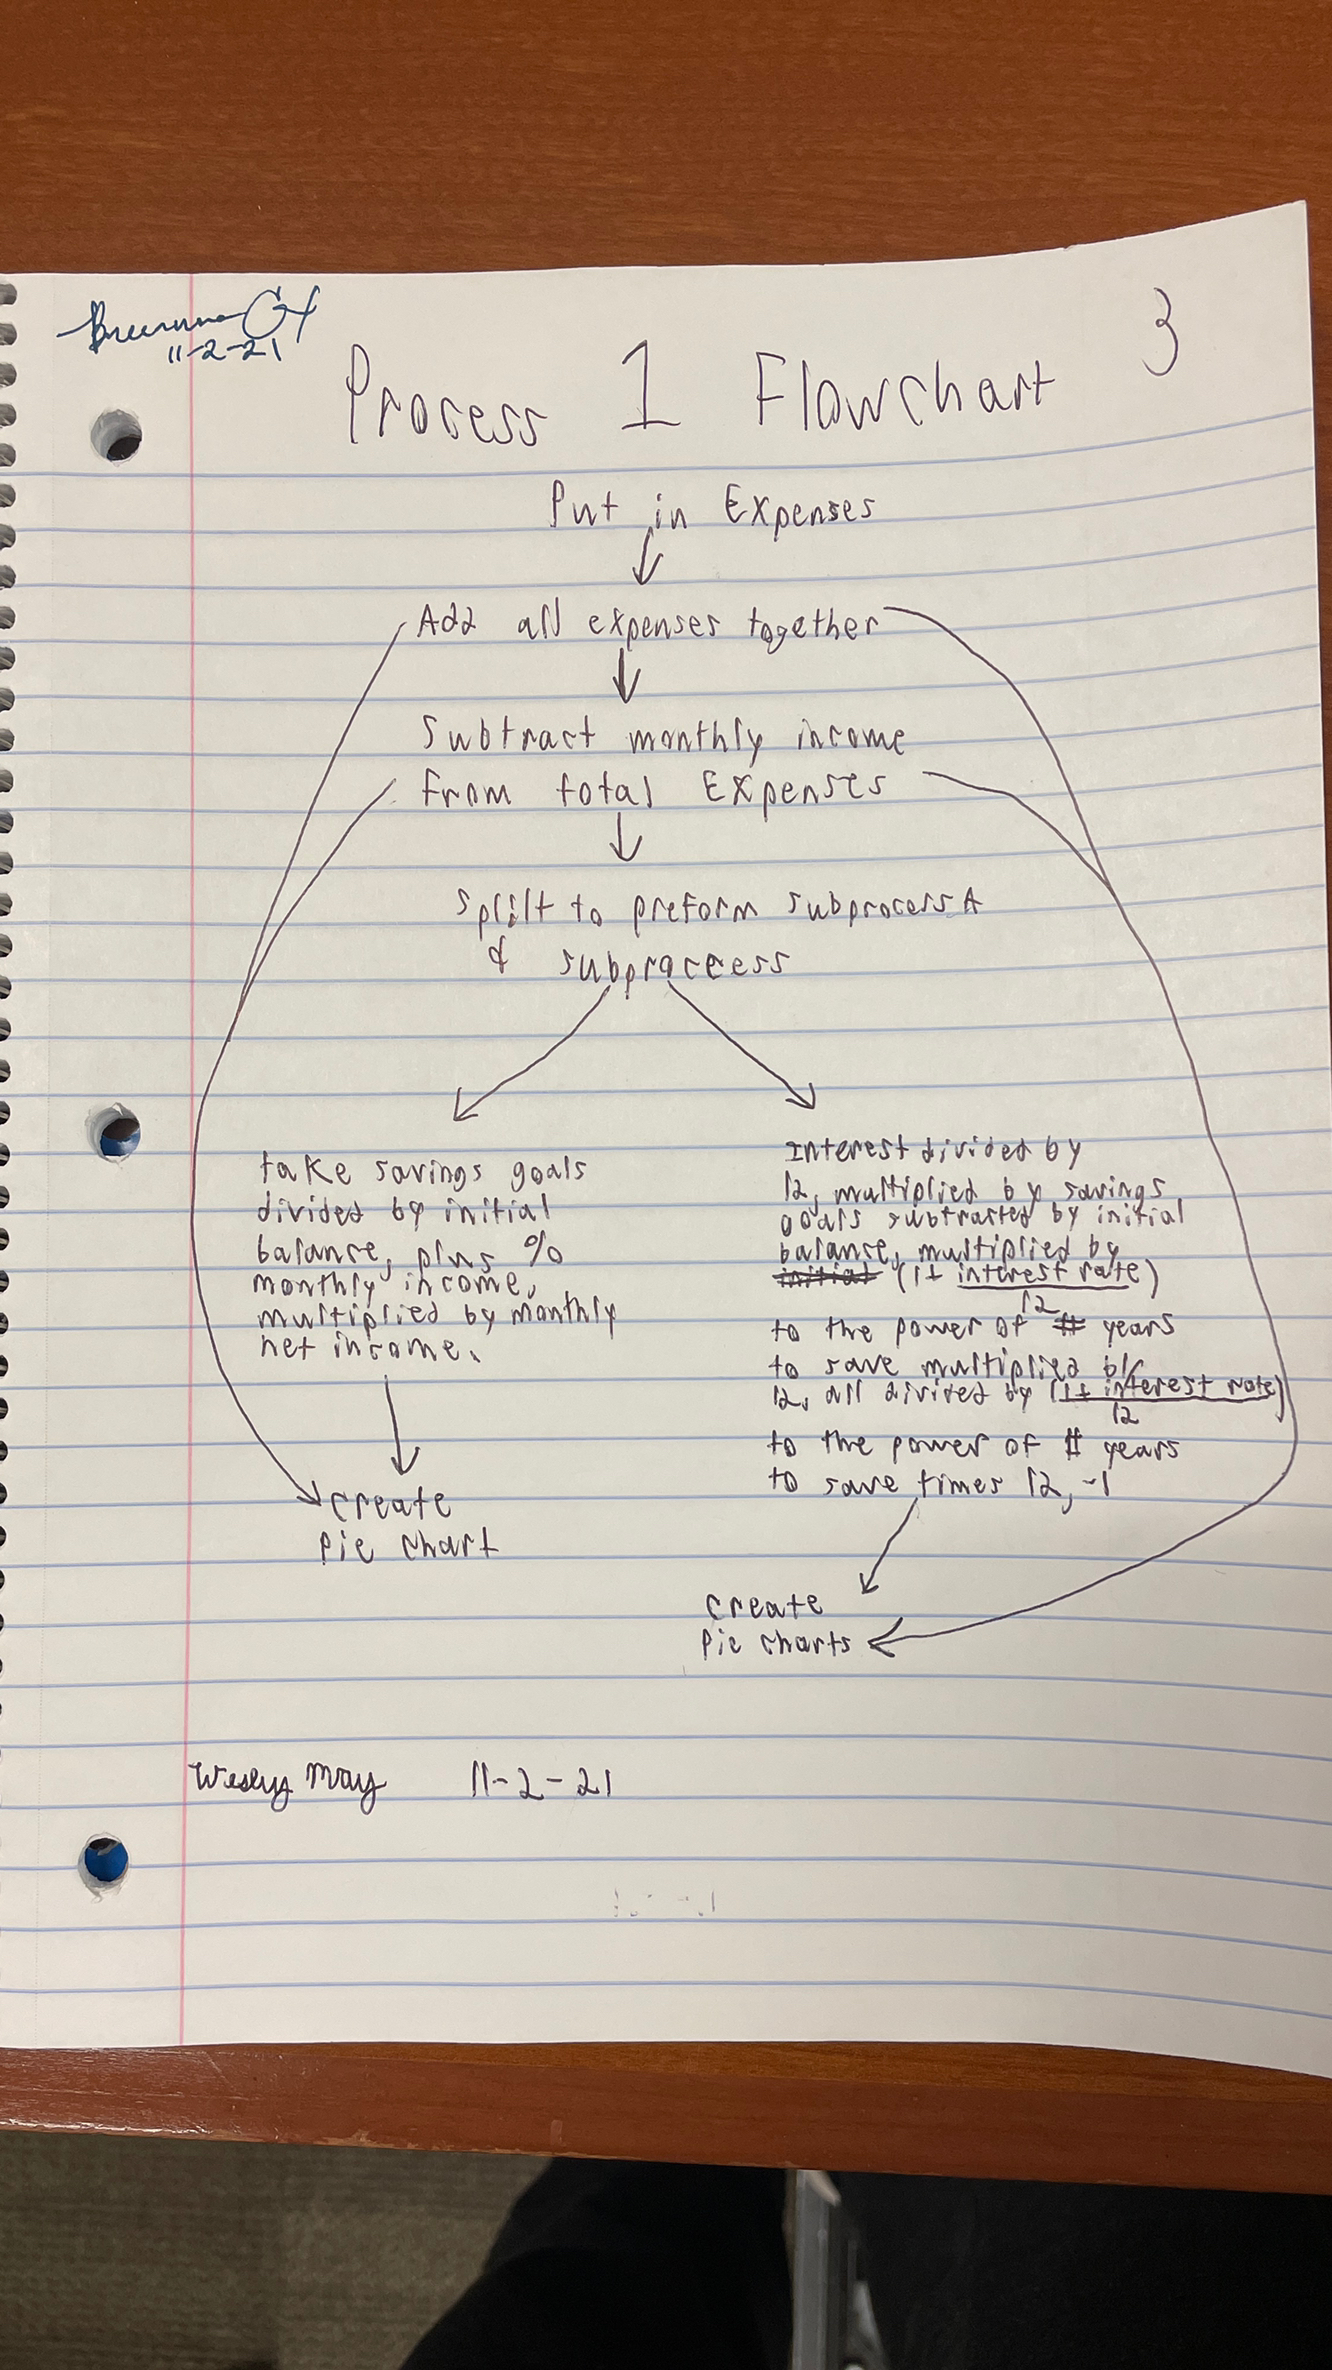 11-2-21
3
Process 1 Flowchart
Put in Expenses
Add all expenses together
Subtract monthly income
from total Expenses
splilt to preform subprocess A
& subproccess
take savings goals
divided by initial
balance, plus %
monthly income,
multiplied by monthly
net income.
create
Pie chart
Interest divided by
12, multiplied by savings
goals subtracted by initial
balance, multiplied by
initial (1+ interest rate)
12
to the power of # years
to save multiplied by
12, all divided by (1+ interest rate)
12
to the power of # years
to save times 12, -1
create
Pie charts
Wesley May 11-2-21